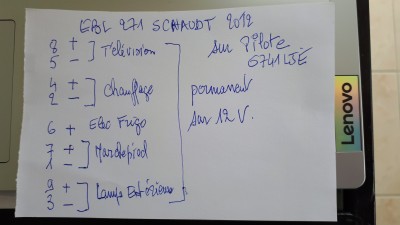 EBL 271 SCHAUDT 2012
sur Pilote
G741LJE
8 +
5 -
Télévision
4 +
2 -
chauffage
permanent
sur 12 V.
6 + Elec Frigo
7 +
1 -
Marchepied
9 +
3 -
Lampe Extérieur
Lenovo